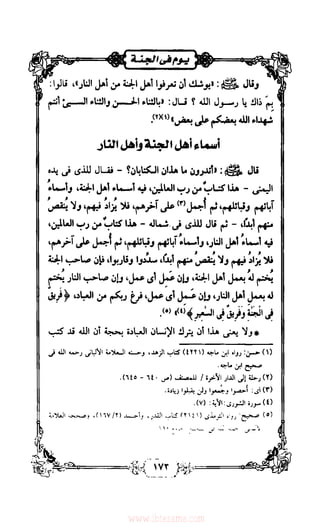 يوم فى الجنة
وقال ﷺ : «يوشك أن تعرفوا أهل الجنة من أهل النار»، قالوا:
بِمَ ذاك يا رسول الله ؟ قال: «بالثناء الحسن والثناء السيئ أنتم
شهداء الله بعضكم على بعض»(١)(٢).
أسماء أهل الجنة وأهل النار
قال ﷺ : «أتدرون ما هذان الكتابان؟ - فقال للذى فى يده
اليمنى - هذا كتابٌ من رب العالمين، فيه أسماء أهل الجنة، وأسماء
آبائهم وقبائلهم، ثم أُجمل(٣) على آخرهم، فلا يُزاد فيهم، ولا يُنقصُ
منهم أبدًا، - ثم قال للذى فى شماله - هذا كتابٌ من رب العالمين،
فيه أسماء أهل النار، وأسماء آبائهم وقبائلهم، ثم أُجمل على آخرهم،
فلا يزاد فيهم ولا يُنقص منهم أبدًا، سددوا وقاربوا، فإن صاحب الجنة
يُختم له بعمل أهل الجنة، وإن عَمِل أى عمل، وإن صاحب النار يختم
له بعمل أهل النار، وإن عمل أى عمل، فرغ ربكم من العباد، ﴿ فريق
فِي الْجَنَّةِ وَفَرِيقٌ فِي السَّعِيرِ ﴾(٤)» (٥)
* ولا يعنى هذا أن يترك الإنسان العبادة بحجة أن الله قد كتب
(١) حسن: رواه ابن ماجه (٤٢٢١) كتاب الزهد، وحسنه العلامة الألبانى رحمه الله فى
صحيح ابن ماجه.
(٢) رحلة إلى الدار الآخرة / للمصنف (ص ٦٤٠ - ٦٤٥).
(٣) أى: أحصوا وجُمعوا ولن يقبلوا زيادة.
(٤) سورة الشورى: الآية: (٧).
(٥) صحيح: رواه الترمذى (٢١٤١) كتاب القدر، وأحمد (١٦٧/٢)، وصححه العلامة
١٧٢
www.ibtesama.com